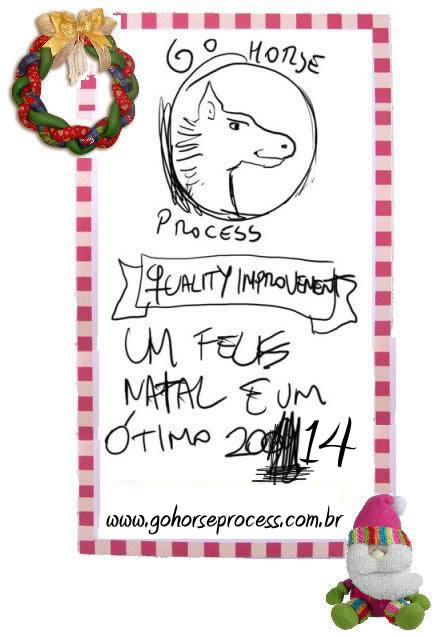 GO HORSE
PROCESS
QUALITY IMPROVEMENTS
UM FELIS
NATAL E UM
ÓTIMO 2014
www.gohorseprocess.com.br